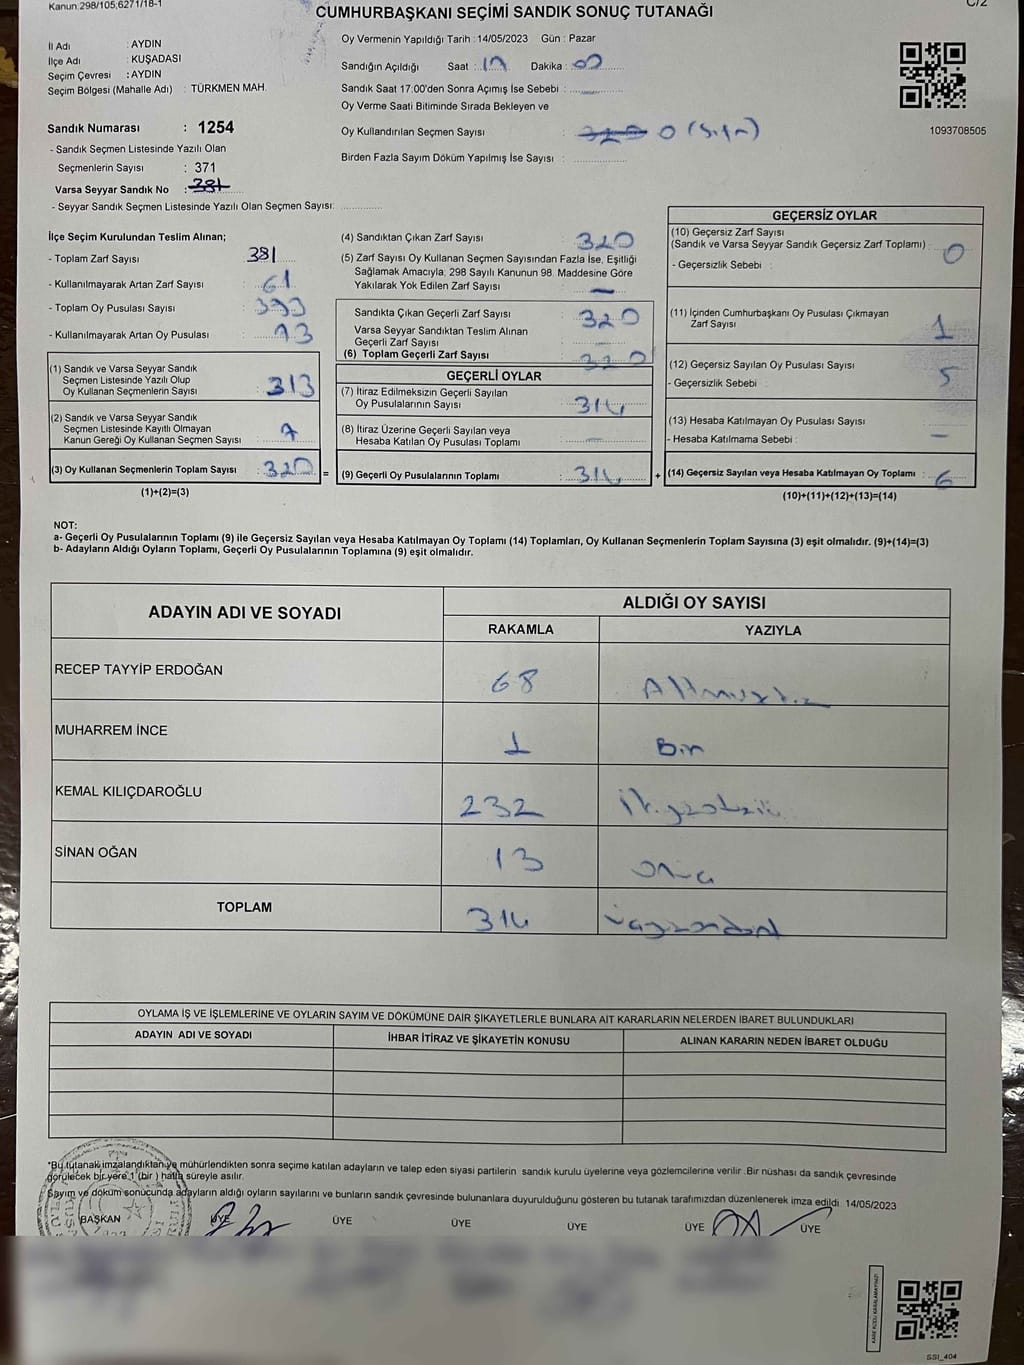 Kanun:298/105,6271/18-1
C/2
CUMHURBAŞKANI SEÇİMİ SANDIK SONUÇ TUTANAĞI
İl Adı : AYDIN
İlçe Adı : KUŞADASI
Seçim Çevresi : AYDIN
Seçim Bölgesi (Mahalle Adı) : TÜRKMEN MAH.
Sandık Numarası : 1254
- Sandık Seçmen Listesinde Yazılı Olan
Seçmenlerin Sayısı : 371
Varsa Seyyar Sandık No : 381
- Seyyar Sandık Seçmen Listesinde Yazılı Olan Seçmen Sayısı:
Oy Vermenin Yapıldığı Tarih : 14/05/2023 Gün : Pazar
Sandığın Açıldığı Saat : 17 Dakika : 00
Sandık Saat 17:00'den Sonra Açımış İse Sebebi : —
Oy Verme Saati Bitiminde Sırada Bekleyen ve
Oy Kullandırılan Seçmen Sayısı : 320 0 (Sıfır)
Birden Fazla Sayım Döküm Yapılmış İse Sayısı :
1093708505
İlçe Seçim Kurulundan Teslim Alınan;
- Toplam Zarf Sayısı : 381
- Kullanılmayarak Artan Zarf Sayısı : 61
- Toplam Oy Pusulası Sayısı : 393
- Kullanılmayarak Artan Oy Pusulası : 73
(1) Sandık ve Varsa Seyyar Sandık
Seçmen Listesinde Yazılı Olup
Oy Kullanan Seçmenlerin Sayısı : 313
(2) Sandık ve Varsa Seyyar Sandık
Seçmen Listesinde Kayıtlı Olmayan
Kanun Gereği Oy Kullanan Seçmen Sayısı : 7
(3) Oy Kullanan Seçmenlerin Toplam Sayısı : 320 =
(1)+(2)=(3)
(4) Sandıktan Çıkan Zarf Sayısı : 320
(5) Zarf Sayısı Oy Kullanan Seçmen Sayısından Fazla İse, Eşitliği
Sağlamak Amacıyla; 298 Sayılı Kanunun 98. Maddesine Göre
Yakılarak Yok Edilen Zarf Sayısı : —
Sandıkta Çıkan Geçerli Zarf Sayısı : 320
Varsa Seyyar Sandıktan Teslim Alınan
Geçerli Zarf Sayısı : —
(6) Toplam Geçerli Zarf Sayısı : 320
GEÇERLİ OYLAR
(7) İtiraz Edilmeksizin Geçerli Sayılan
Oy Pusulalarının Sayısı : 314
(8) İtiraz Üzerine Geçerli Sayılan veya
Hesaba Katılan Oy Pusulası Toplamı : —
(9) Geçerli Oy Pusulalarının Toplamı : 314 +
GEÇERSİZ OYLAR
(10) Geçersiz Zarf Sayısı
(Sandık ve Varsa Seyyar Sandık Geçersiz Zarf Toplamı) : 0
- Geçersizlik Sebebi :
(11) İçinden Cumhurbaşkanı Oy Pusulası Çıkmayan
Zarf Sayısı : 1
(12) Geçersiz Sayılan Oy Pusulası Sayısı : 5
- Geçersizlik Sebebi :
(13) Hesaba Katılmayan Oy Pusulası Sayısı : —
- Hesaba Katılmama Sebebi :
(14) Geçersiz Sayılan veya Hesaba Katılmayan Oy Toplamı : 6
(10)+(11)+(12)+(13)=(14)
NOT:
a- Geçerli Oy Pusulalarının Toplamı (9) ile Geçersiz Sayılan veya Hesaba Katılmayan Oy Toplamı (14) Toplamları, Oy Kullanan Seçmenlerin Toplam Sayısına (3) eşit olmalıdır. (9)+(14)=(3)
b- Adayların Aldığı Oyların Toplamı, Geçerli Oy Pusulalarının Toplamına (9) eşit olmalıdır.
ADAYIN ADI VE SOYADI
ALDIĞI OY SAYISI
RAKAMLA YAZIYLA
RECEP TAYYİP ERDOĞAN 68
MUHARREM İNCE 1 Bir
KEMAL KILIÇDAROĞLU 232
SİNAN OĞAN 13
TOPLAM 314
OYLAMA İŞ VE İŞLEMLERİNE VE OYLARIN SAYIM VE DÖKÜMÜNE DAİR ŞİKAYETLERLE BUNLARA AİT KARARLARIN NELERDEN İBARET BULUNDUKLARI
ADAYIN ADI VE SOYADI İHBAR İTİRAZ VE ŞİKAYETİN KONUSU ALINAN KARARIN NEDEN İBARET OLDUĞU
*Bu tutanak imzalandıktan ve mühürlendikten sonra seçime katılan adayların ve talep eden siyasi partilerin sandık kurulu üyelerine veya gözlemcilerine verilir. Bir nüshası da sandık çevresinde
görülecek bir yere 1 (bir) hafta süreyle asılır.
Sayım ve döküm sonucunda adayların aldığı oyların sayılarını ve bunların sandık çevresinde bulunanlara duyurulduğunu gösteren bu tutanak tarafımızdan düzenlenerek imza edildi. 14/05/2023
BAŞKAN ÜYE ÜYE ÜYE ÜYE ÜYE ÜYE
SSI_404